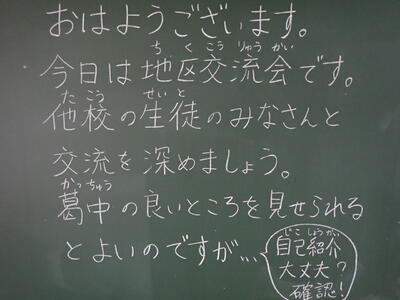 おはようございます。
ちくこうりゅうかい
今日は地区交流会です。
たこう せいと
他校の生徒のみなさんと
交流を深めましょう。
かっちゅう
葛中の良いところを見せられる
とよいのですが…
じこしょうかい
自己紹介
大丈夫?
確認!